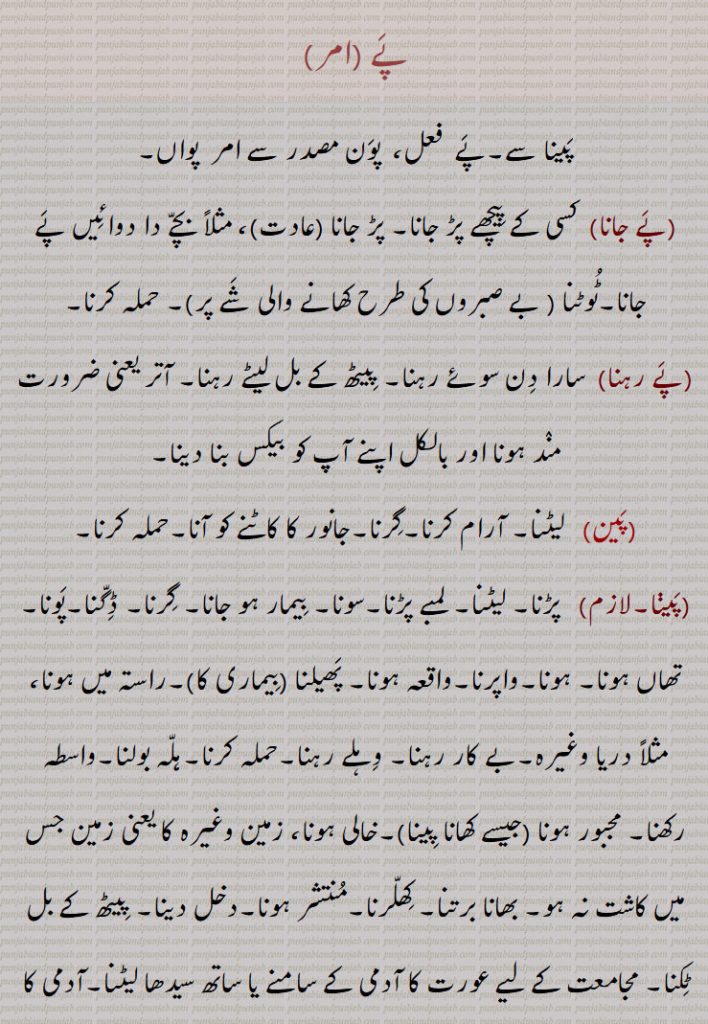 پَے (امر)
پَینا سے۔پَے فعل، پوَن مصدر سے امر پواں۔
(پَے جانا) کسی کے پیچھے پڑ جانا۔ پڑ جانا (عادت)، مثلاً بچّے دا دوائِیں پَے
جانا۔ٹُوٹنا ( بے صبروں کی طرح کھانے والی شَے پر)۔ حملہ کرنا۔
(پَے رہنا) سارا دِن سوئے رہنا۔ پِیٹھ کے بل لیٹے رہنا۔ آتر یعنی ضرورت
منْد ہونا اور بالکل اپنے آپ کو بیکس بنا دینا۔
(پَین) لیٹنا۔ آرام کرنا۔گِرنا۔جانور کا کاٹنے کو آنا۔حملہ کرنا۔
(پَینا۔لازم) پڑنا۔ لیٹنا۔ لمبے پڑنا۔سونا۔ بِیمار ہو جانا۔ گِرنا۔ ڈِگّنا۔پَونا۔
تھاں ہونا۔ ہونا۔واپرنا۔واقعہ ہونا۔ پَھیلنا (بِیماری کا)۔راستہ میں ہونا،
مثلاً دریا وغیرہ۔بے کار رہنا۔ وِہلے رہنا۔حملہ کرنا۔ہلّہ بولنا۔واسطہ
رکھنا۔ مجبور ہونا (جیسے کھانا پِینا)۔خالی ہونا، زمین وغیرہ کا یعنی زمین جس
میں کاشت نہ ہو۔ بھانا برتنا۔ کِھلّرنا۔مُنتشر ہونا۔دخل دینا۔ پِیٹھ کے بل
ٹِکنا۔ مجامعت کے لیے عورت کا آدمی کے سامنے یا ساتھ سیدھا لیٹنا۔آدمی کا